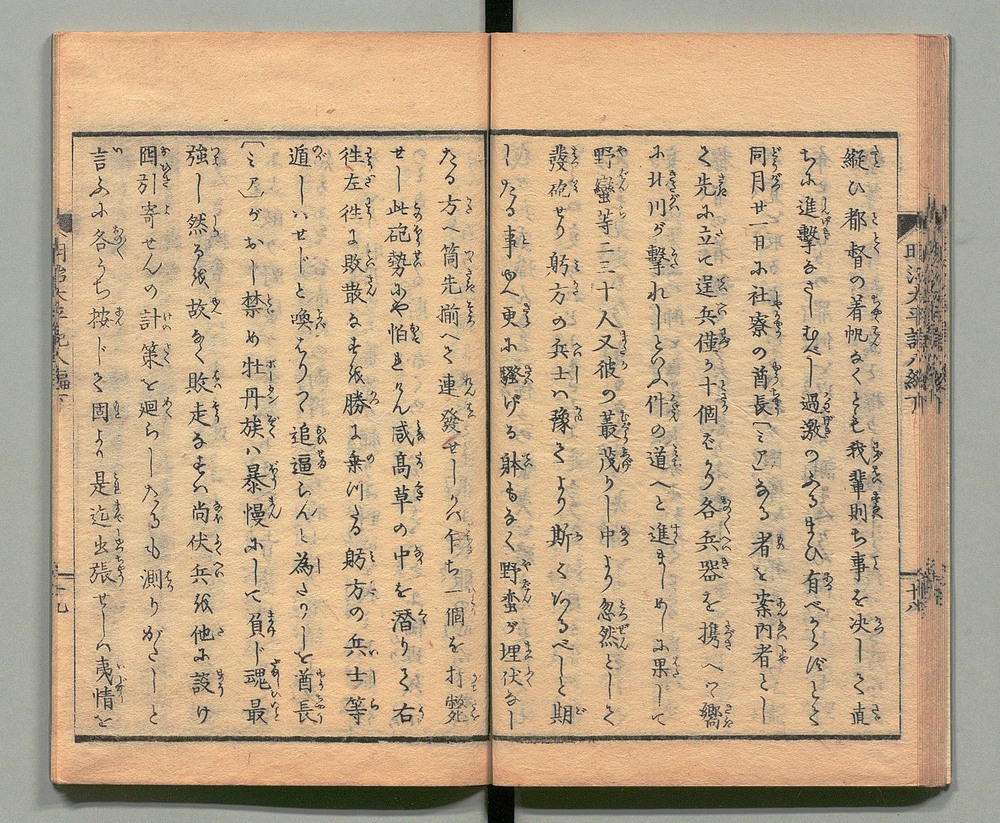 縦ひ都督の着帆なくとも我輩則ち事を决して直
ちに進撃なさしむべし過激のふるまひ有べからずとて
同月廿一日に社寮の酋長〔ミア〕なる者を案内者とし
て先に立て逞兵僅か十個ばかり各兵器を携へつ嚮
に北川が撃れしといふ件の道へと進ましめしに果して
野蠻等二三十人又彼の叢茂りし中より忽然として
發砲せり躬方の兵士ハ豫てより斯くあるべしと期
したる事ゆへ更に騒げる躰もなく野蛮が埋伏なし
たる方へ筒先揃へて連發せしかバ乍ち一個を打斃
せし此砲勢にや怕れけん咸髙草の中を潜りて右
往左往に敗散なすを勝に乗川たる躬方の兵士等
遁しハせじと喚はりつゝ追逼らんと為たりしを酋長
〔ミア〕がおし禁め牡丹族ハ暴慢にして負じ魂最
強し然るを故なく敗走なすハ尚伏兵を他に設け
囮引寄せんの計策を廻らしたるも測りがたしと
言ふに各うち按じて固より是迄出張せしハ夷情を
明治太平記八編下
十八
明治太平記八編下
十九